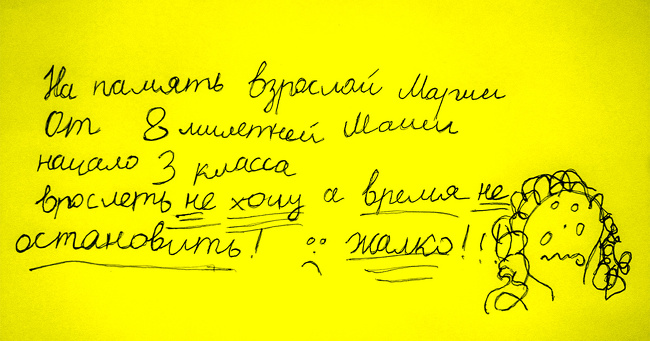 На память взрослой Марии
От 8 милетней Маши
начало 3 класса
врослеть не хочу а время не
остановить! :( жалко!!!